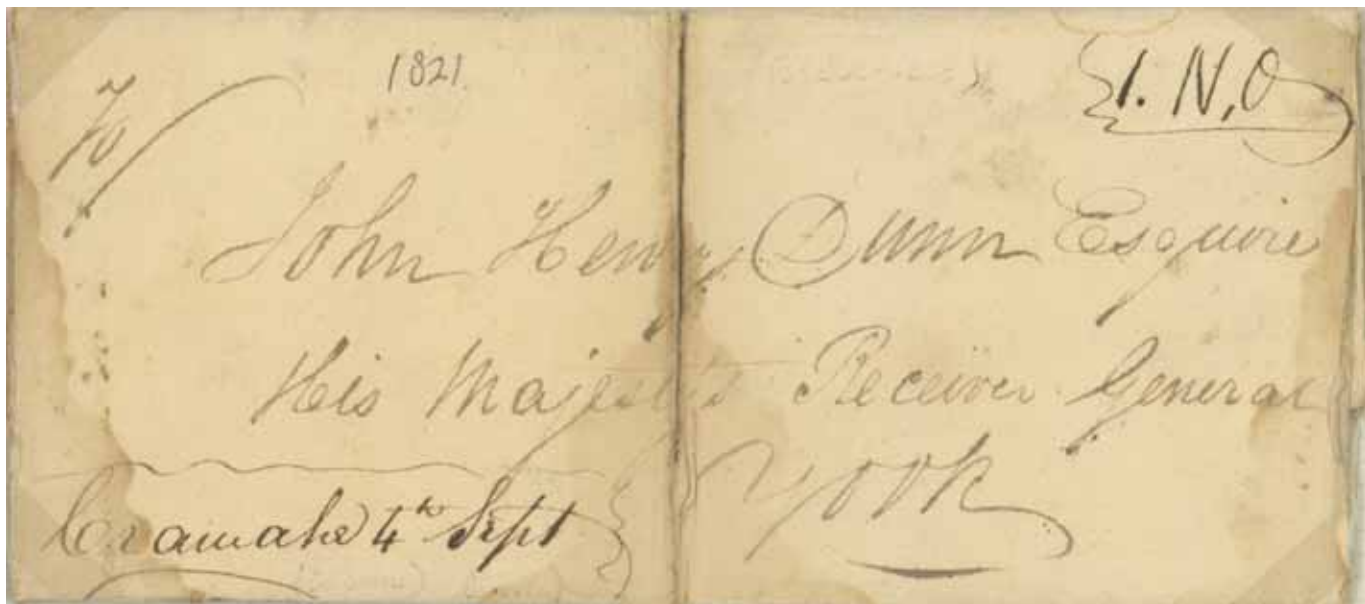 1821.
1. N, O
To
John Henry Dunn Esquire
His Majesty's Receiver General
York
Cramahe 4th Sept